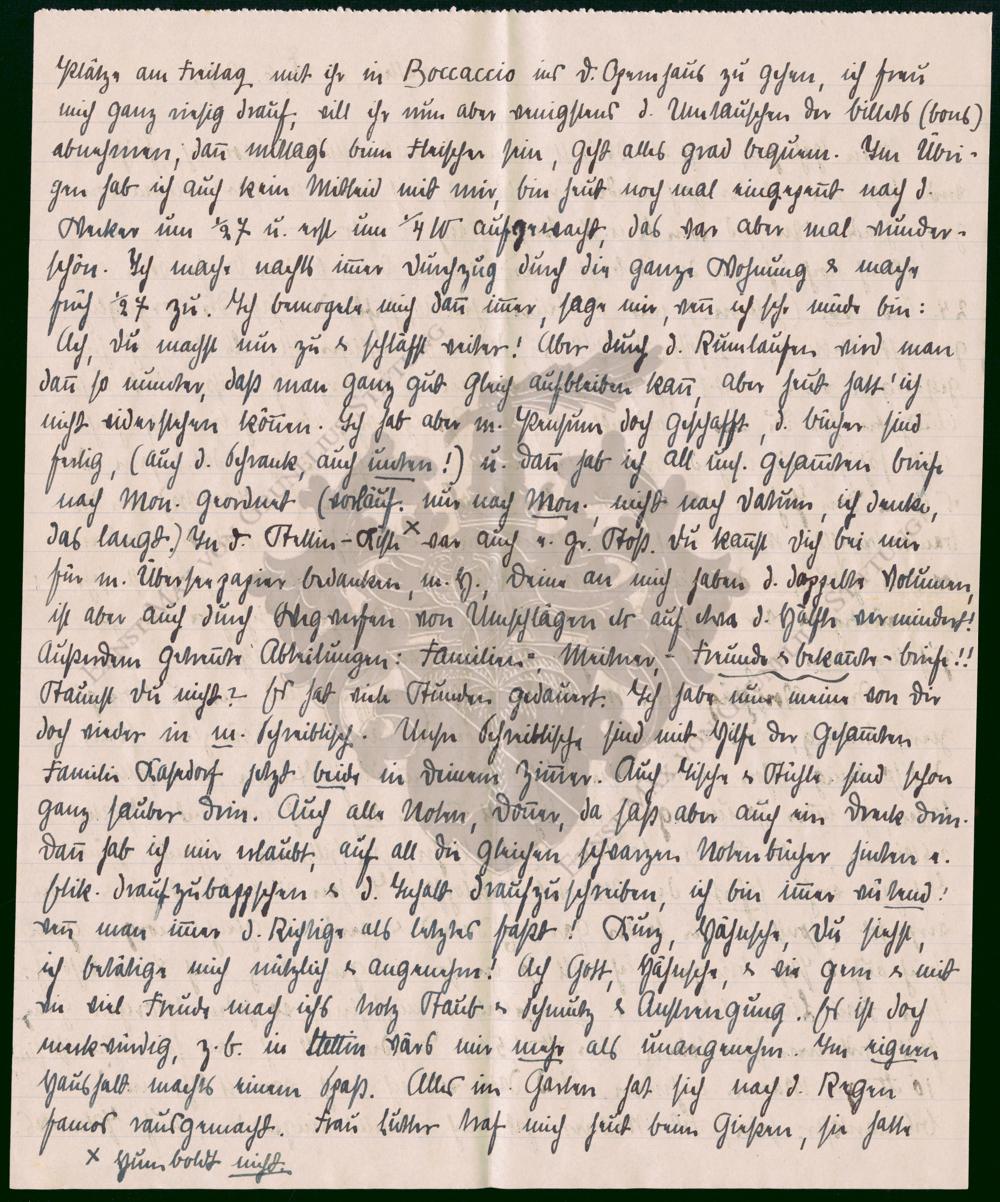 Plätze am Freitag mit ihr in Boccaccio ins d. Opernhaus zu gehen, ich freu
mich ganz riesig drauf, will ihr nun aber wenigstens d. Umtauschen der billets (bons)
abnehmen, dan̄ mittags beim Fleischer sein, geht alles grad bequem. Im Übri-
gen hab ich auch kein Mitleid mit mir, bin heut noch mal eingepen̄t nach d.
Wecker um ½7 u. erst um ¼10 aufgewacht, das war aber mal wunder-
schön. Ich mache nachts im̄er Durchzug durch die ganze Wohnung & mache
früh ½7 zu. Ich bemogele mich dan̄ im̄er, sage mir, wen̄ ich sehr müde bin:
Ach, du machst nur zu & schläfst weiter! Aber durch d. Rumlaufen wird man
dan̄ so munter, daß man ganz gut gleich aufbleiben kan̄, aber heut hatt' ich
nicht widerstehen kön̄en. Ich hab aber m. Pensum doch geschafft, d. bücher sind
fertig, (auch d. Schrank, auch unten!) u. dan̄ hab ich all uns. gesam̄ten briefe
nach Mon. geordnet (vorläuf. nur nach Mon., nicht nach Datum, ich denke,
das langt.) In d. Stettin-Kiste x war auch e. gr. Stoß. Du kan̄st Dich bei mir
für m. Überseepapier bedanken, m. H., Deine an mich haben d. doppelte Volumen,
ist aber auch durch Wegwerfen von Umschlägen etc auf etwa d. Hälfte vermindert!
Außerdem getren̄te Abteilungen: Familien-, Meitner,- Freunde & bekan̄te-briefe!!
Staunst Du nicht? Es hat viele Stunden gedauert. Ich habe nun meine von Dir
doch wieder in m. Schreibtisch. Unsre Schreibtische sind mit Hilfe der gesam̄ten
Familie Kahsdorf jetzt beide in Deinem Zim̄er. Auch Tische & Stühle sind schon
ganz sauber drin. Auch alle Noten, Don̄er, da saß aber auch ein Dreck drin.
Dan̄ hab ich mir erlaubt, auf all die gleichen schwarzen Notenbücher hinten e.
Etik. draufzubappschen & d. Inhalt draufzuschreiben, ich bin im̄er wütend!
wen̄ man im̄er d. Richtige als letztes faßt! Kurz, Hähnsche, Du siehst,
ich betätige mich nützlich & angenehm! Ach Gott, Hähnsche, & wie gern & mit
wie viel Freude mach ichs trotz Staub & Schmutz & Anstrengung. Es ist doch
merkwürdig, z.b. in Stettin wärs mir mehr als unangenehm. Im eignen
Haushalt machts einem Spaß. Alles im Garten hat sich nach d. Regen
famos rausgemacht. Frau Lutter traf mich heut beim Gießen, sie hatte
x Humboldt nicht.